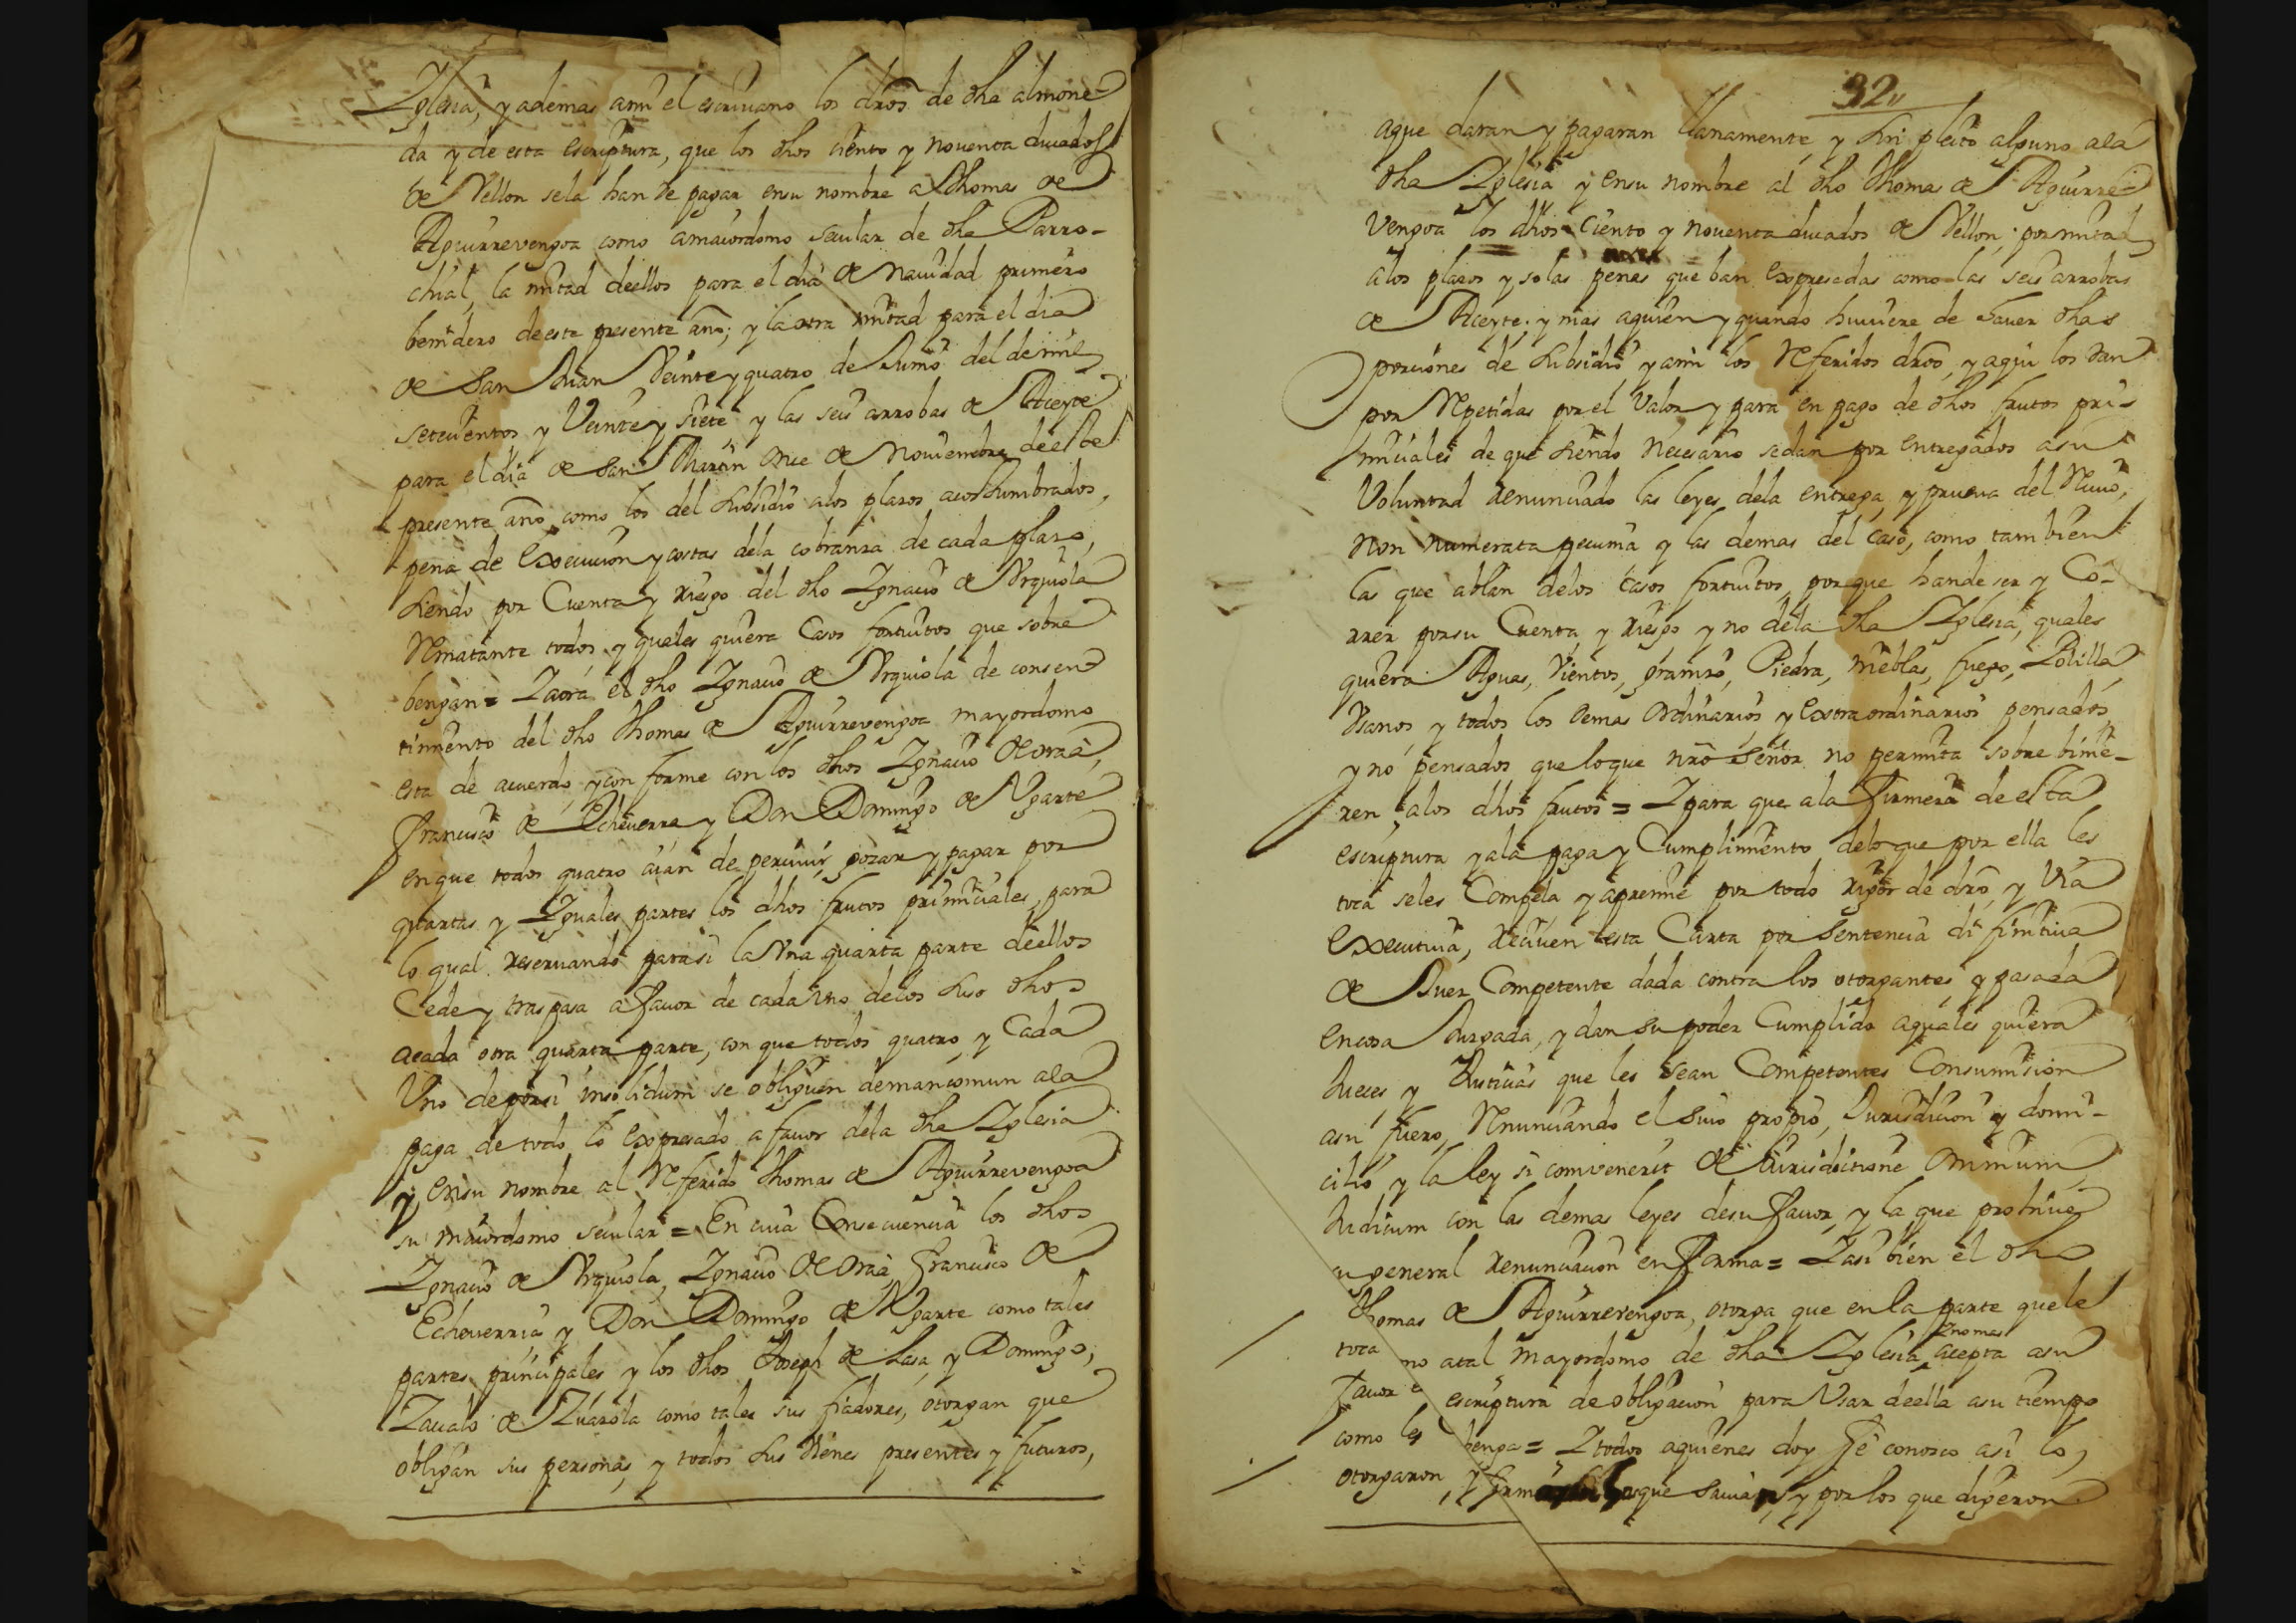 Yglesia, y ademas ami el escriuano los dros de dha almone-
da y de esta escriptura, que los dhos ciento y nouenta ducados
de Vellon sela han de pagar ensu nombre a Thomas de
Aguirrevengoa como amaiordomo secular de dha Parro-
chial, la mitad deellos para el dia de nauidad primero
benidero deeste presente año; y laotra mitad para el dia
de San Juan Veinte y quatro de Junio del de mil
setecientos y Veinte y siete y las seis arrobas de Aceyte
para el dia de San Martin once de nouiembre deeste
presente año como los del subsidio alos plazos acostumbrados,
pena de Execucion y costas dela cobranza de cada plazo,
siendo por Cuenta y riesgo del dho Ygnacio de Vrquiola
Rematante todos y quales quiera Casos fortuitos que sobre
bengan = Yaora el dho Ygnacio de Vrquiola de consen-
timiento del dho Thomas de Aguirrevengoa mayordomo
esta de acuerdo, y con forme con los dhos Ygnacio de oraa,
Francisco de Echeverria y Don Domingo de Vgarte
enque todos quatro aian de perciuir, gozar y pagar por
quartas y Yguales partes los dhos frutos primiciales, para
lo qual reseruando parasi la Vna quarta parte deellos
Cede y traspasa afauor de cada vno delos suso dhos
acada otra quarta parte, con que todos quatro, y Cada
Vno deporsi insolidum se obliguen demancomun ala
paga de todo lo expresado a fauor dela dha Yglesia
y ensu nombre al Referido Thomas de Aguirrevengoa
su maiordomo secular = En cuia Consecuencia los dhos
Ygnacio de Vrquiola, Ygnacio de Oraa, Francisco de
Echeuerria y Don Domingo de Vgarte como tales
partes principales y los dhos Joseph de Lasa, y Domingo,
Zaualo de Zuazola como tales sus fiadores, otorgan que
obligan sus personas, y todos sus Vienes presentes y futuros,
32
aque daran y pagaran llanamente, y sin pleito alguno ala
dha Yglesia y ensu nombre al dho Thomas de Aguirre-
vengoa los dhos Ciento y nouenta ducados de Vellon, por mitad
alos plazos y so las penas que ban Expresadas como las seis arrobas
de Aceyte; y mas aquien y quando huuiere de hauer dhas
porciones de subsidio y ami los Referidos dros, y aqui los dan
por Repetidas por el Valor y para en pago de dhos frutos pri-
miciales de que siendo necesario sedan por entregados asu
Voluntad renunciado las leyes dela entrega, y prueua del Reciuo,
non numerata pecunia y las demas del caso, como tambien
las que ablan delos casos fortuitos, porque hande ser y Co-
rrer porsu Cuenta y riesgo y no dela dha Yglesia, quales
quiera Aguas, Vientos, granizo, Piedra, nieblas, fuego, Polilla,
Vsanos, y todos los demas Ordinarios, y extraordinarios pensados,
y no pensados que loque nro Señor no permita sobre binie-
ren alos dhos frutos = Ypara que ala firmeza de esta
escriptura y ala paga y Cumplimiento deloque por ella les
toca seles Compela y apremie por todo rigor de dro, y Via
Executiua, reciuen esta Carta por Sentencia difinitiua
de Juez Competente dada contra los otorgantes, y pasada
encosa Juzgada, y dan su poder Cumplido aquales quiera
Jueces y Justicias que les sean Competentes Consumision
asu fuero, Renunciando el suio propio, Jurisdicion y domi-
cilio y la ley si convenerit de Jurisdicione Omnium
Judicum con las demas leyes desu fauor, y la que prohiue
su general renunciacion en forma = Yasi bien el dho
Thomas de Aguirrevengoa, otorga que en la parte quele
toca no atal mayordomo de dha Yglesia, Thomas acepta asu
fauor escriptura de obligacion para Vsar deella asu tiempo
como le benga = Ytodos aquienes doy Fe conosco asi lo,
otorgaron, y firm que sauian, y por los que digeron